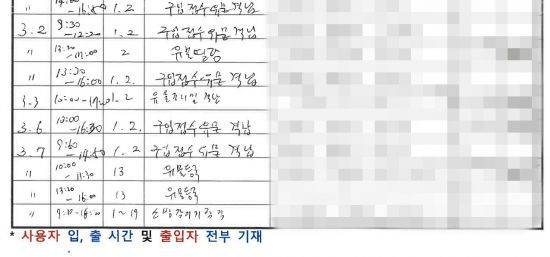 -16:50 1.2 구입접수유물 격납
3.2 9:30 -12:20 1.2 구입접수유물 격납
〃 13:30 -17:00 2 유물열람
〃 13:30 -16:00 1.2. 구입접수유물 격납
3.3 10:00-17:20 1.2 유물 격납
3.6 10:00 -16:30 1.2. 구입접수유물 격납
3.7 9:40 -14:50 1.2 구입접수유물 격납
〃 10:00 -11:30 13 유물등록
〃 13:20 -16:00 13 유물등록
〃 1~19
* 사용자 입, 출 시간 및 출입자 전부 기재